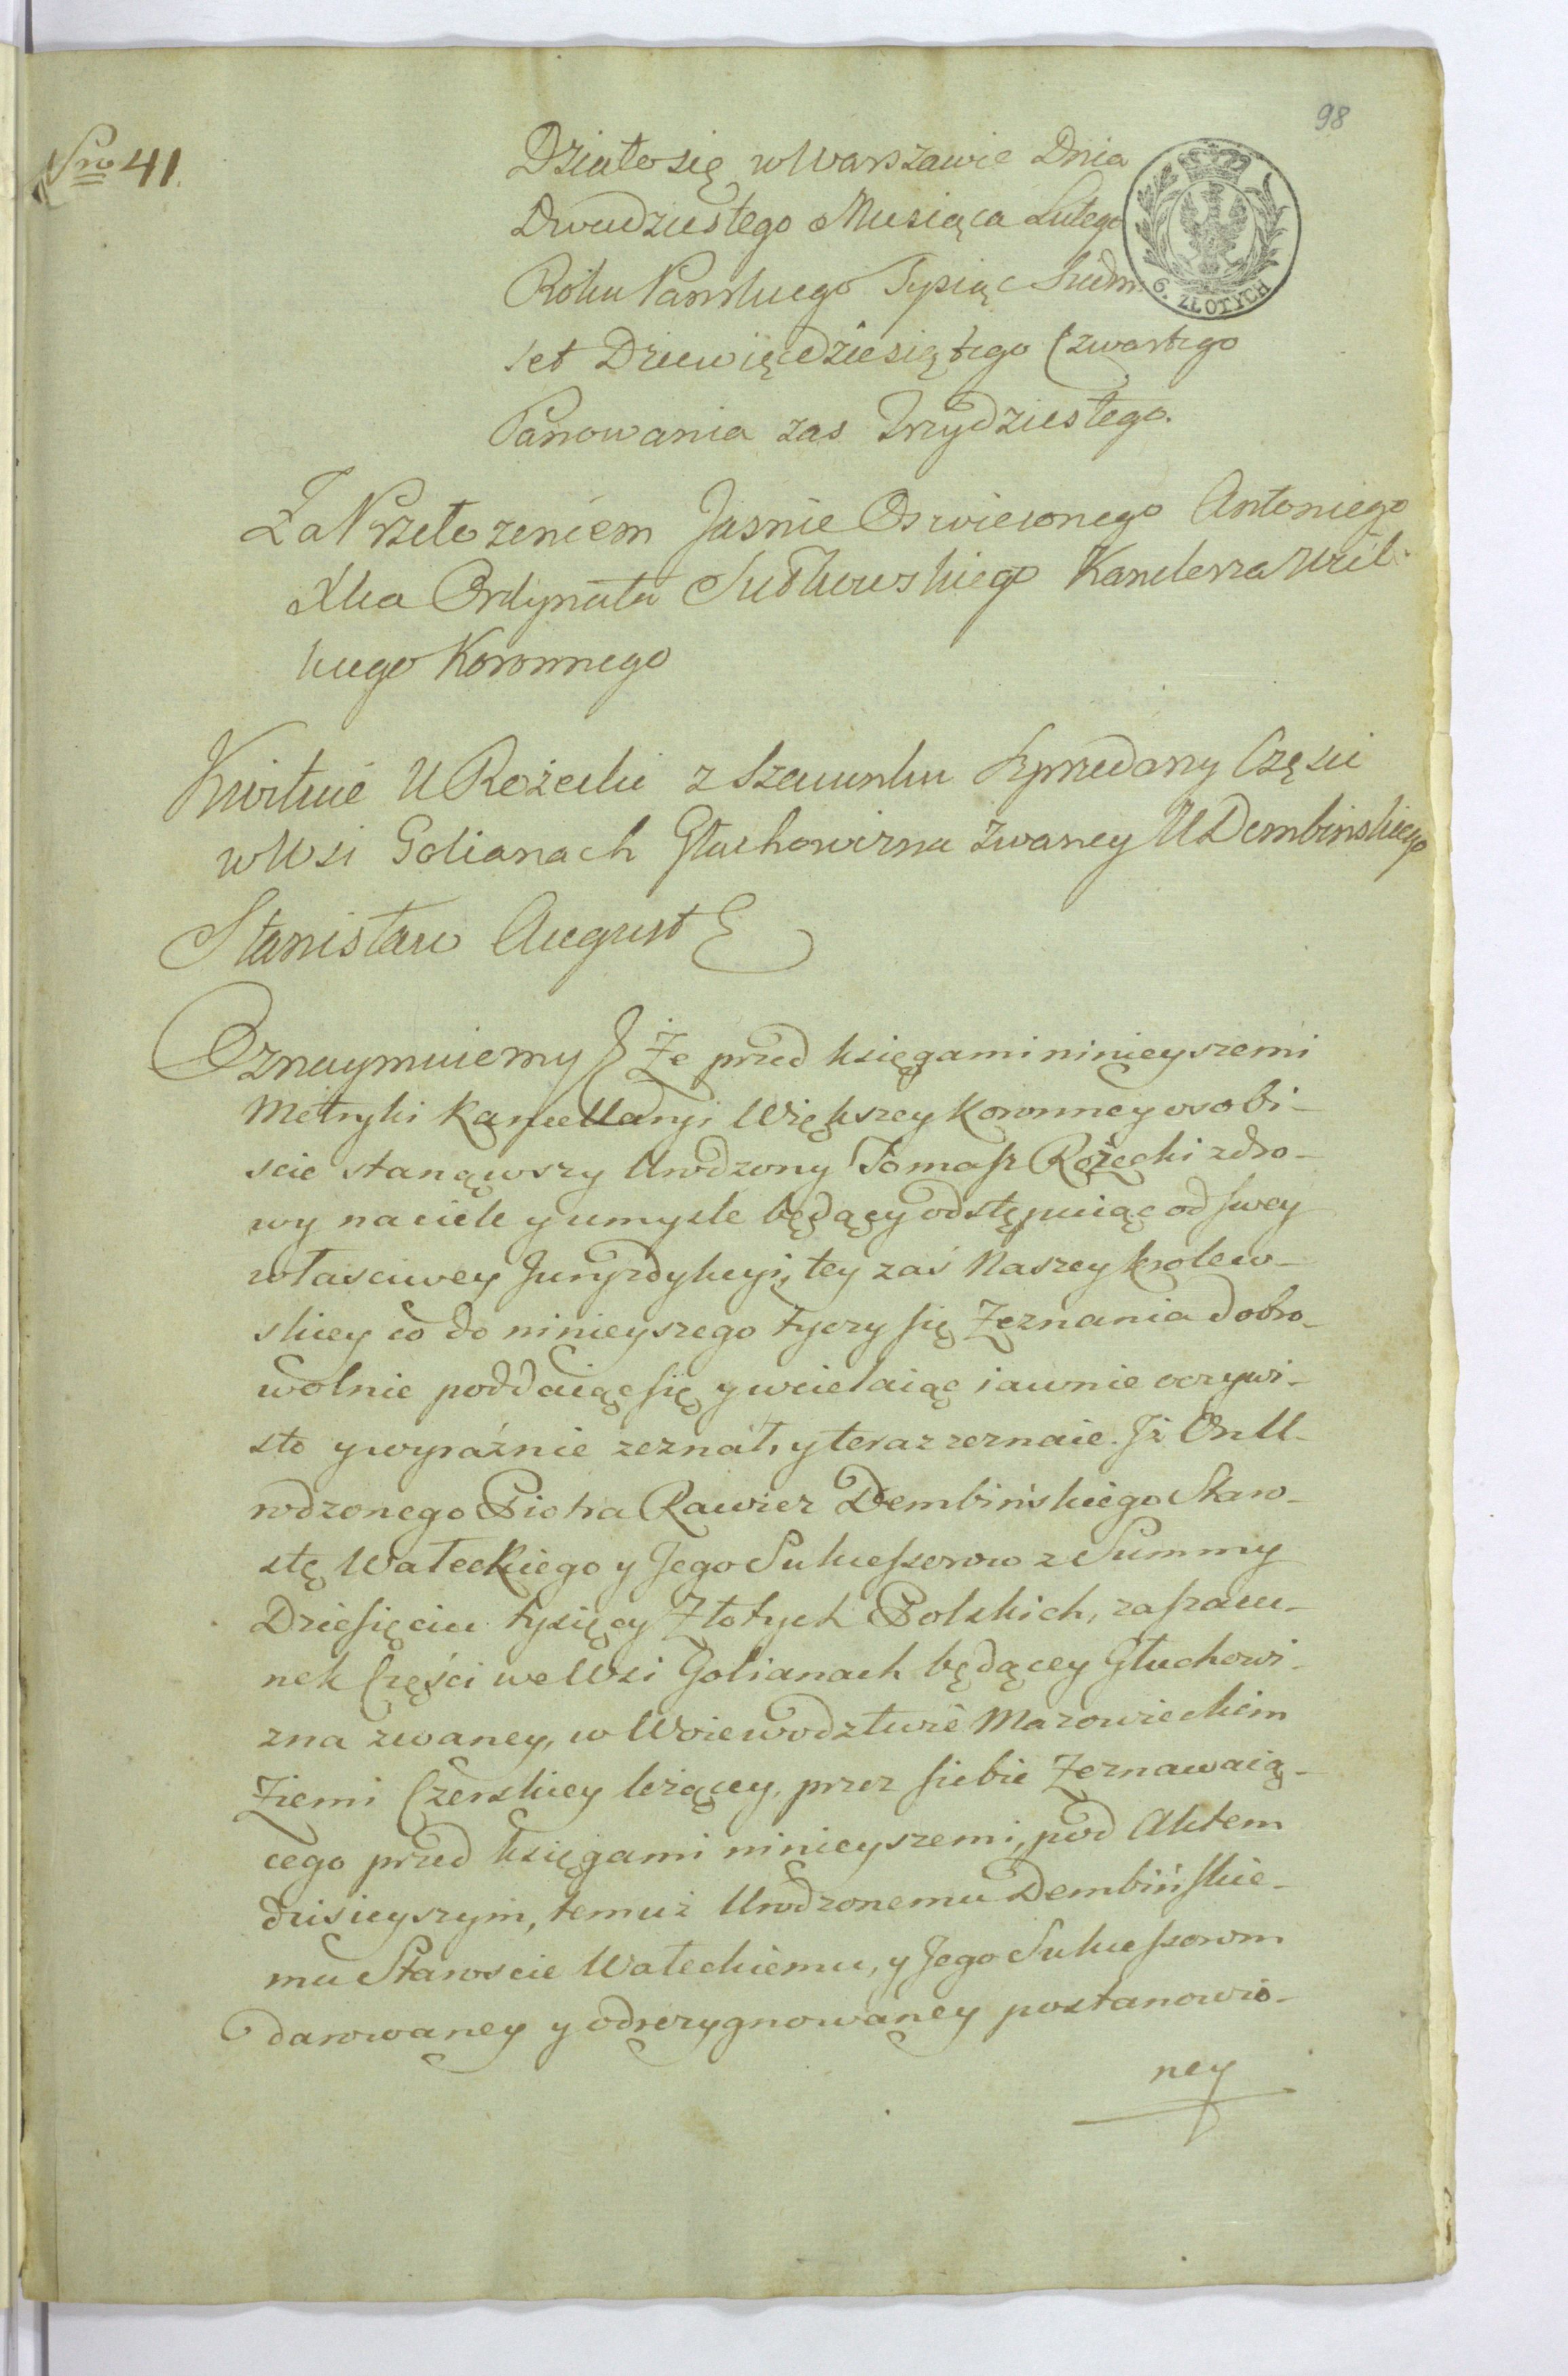 98
Nro 41.
Działo się w Warszawie Dnia
Dwudziestego Miesiąca Lutego
Roku Pańskiego Tysiąc Siedm
set Dziewięćdziesiątego Czwartego
Panowania zas Trzydziestego.
6. ZŁOTYCH
Za Przełozeniem Jasnie Oswieconego Antoniego
Xcia Ordynata Sułkowskiego Kanclerza Wiel-
kiego Koronnego
Kwituie U Rożecki z Szacunku sprzedany Części
w Wsi Golianach Głuchowizna zwaney U Dembinskiego
Stanisław August
Oznaymuiemy Że przed księgami ninieyszemi
Metryki Kancellaryi Większey Koronney osobi-
scie stanąwszy Urodzony Tomasz Rożecki zdro-
wy na ciele y umysle będący odstępuiąc od swey
własciwey Juryzdykcyi, tey zaś Naszey krolew-
skiey co do ninieyszego tyczy się Zeznania dobro-
wolnie poddaiąc się y wcielaiąc iawnie oczywi-
sto y wyraźnie zeznał, y teraz zeznaie. Jż On U-
rodzonego Piotra Rawicz Dembińskiego Staro-
stę Wałeckiego y Jego Sukcessorow z Summy
Dziesięciu tysięcy Złotych Polskich, za szacu-
nek Części we Wsi Golianach będącey Głuchowi-
zna zwaney, w Woiewodztwie Mazowieckiem
Ziemi Czerskiey leżącey, przez siebie Zeznawaią-
cego przed księgami ninieyszemi, pod Aktem
dzisieyszym, temuż Urodzonemu Dembińskie-
mu Staroscie Wałeckiemu, y Jego Sukcessorom
darowaney y odrezygnowaney postanowio-
ney